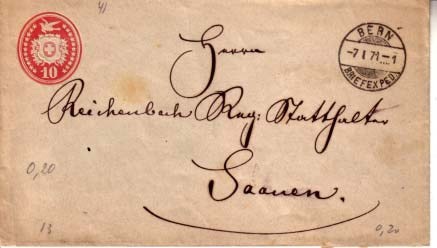 41
10
BERN
-7 I 71 - 1
BRIEFEXPED.
Herrn
Reichenbach Reg: Statthalter
Saanen.
0,20
13
0,20